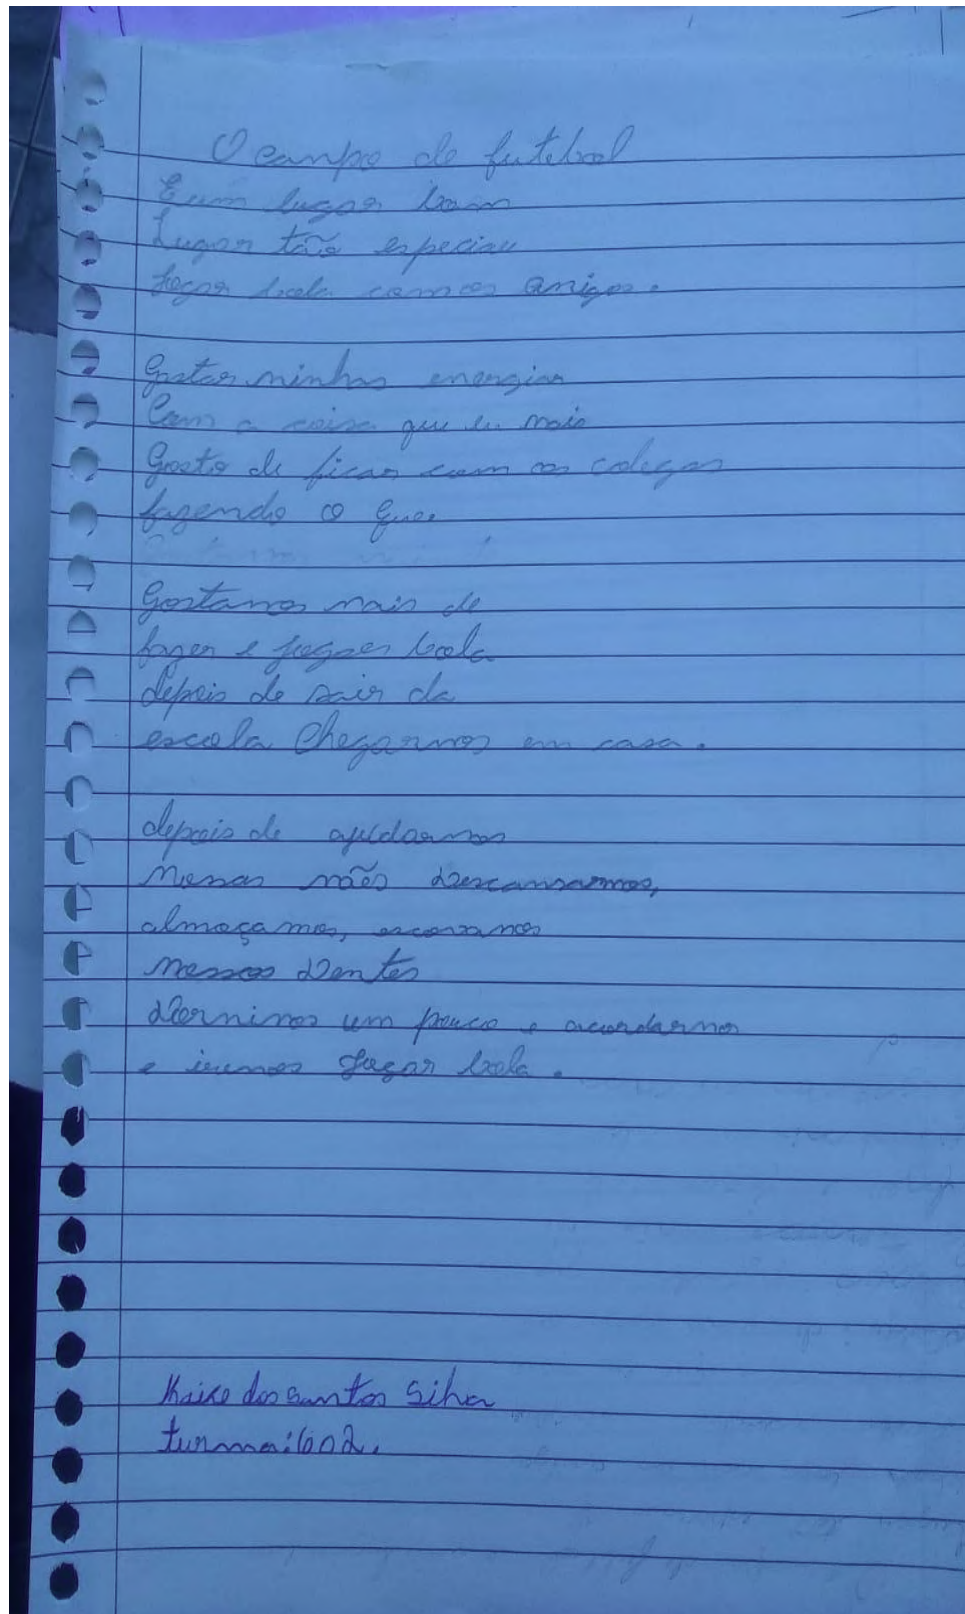 O campo de futebol
E um lugar bom
Lugar tão especiau
Jogar bola com os amigos.
Gastar minhas energias
Com a coisa que eu mais
Gosto de ficar com os colegas
fazendo o que.
Gostamos mais de
fazer e jogar bola
depois de sair da
escola Chegarmos em casa.
depois de ajudarmos
nossas mães Descansarmos,
almoçamos, escovamos
nossos Dentes
Dormimos um pouco e acordarmos
e iremos Jogar bola.
dos Santos Silva
turma:602.